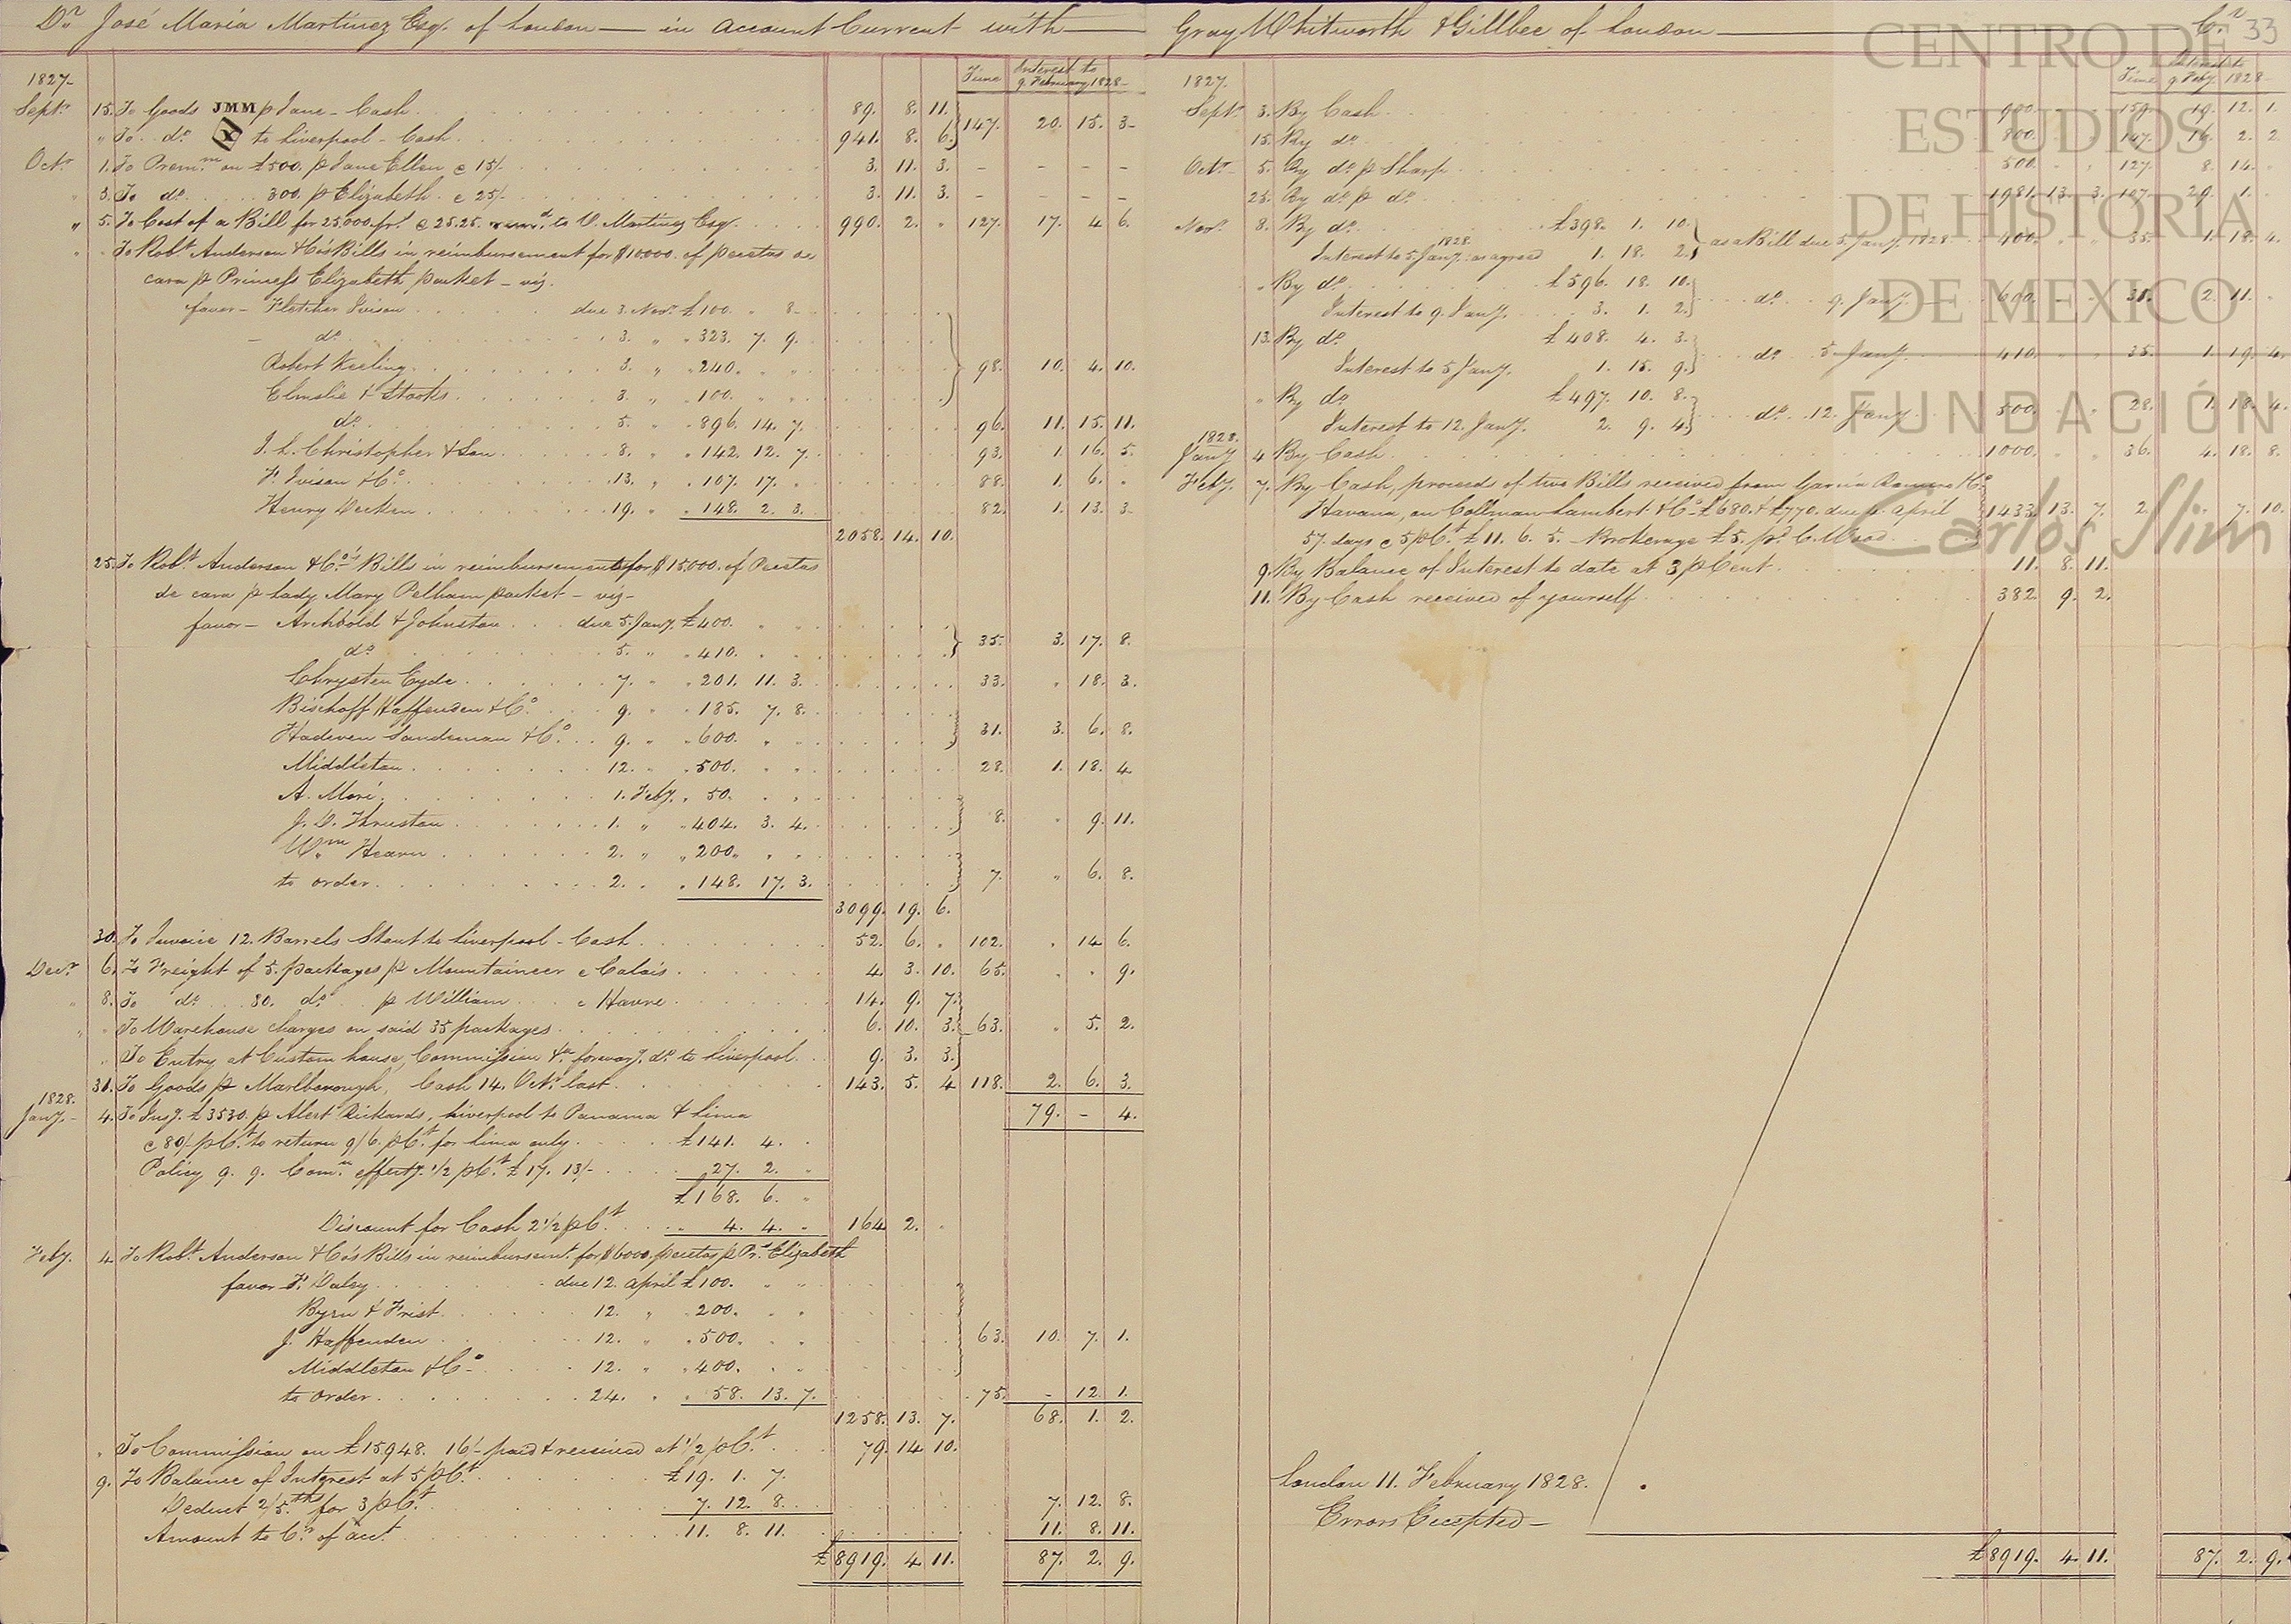 Dr José María Martínez Esqr. of London — in Account Current with — Gray Whitworth & Gillbee of London — Cr. 33
1827 Time Interest to 9. February 1828
Septr. 15. To Goods JMM p Jane - Cash 89. 8. 11.
" To do. to Liverpool - Cash 941. 8. 6. 147. 20. 15. 3
Octr. 1. To Premm. on £500. p Jane Ellen @ 15/. 3. 11. 3. - - - -
" 3. To do. 300. p Elizabeth @ 25/. 3. 11. 3. - - - -
" 5. To Cost of a Bill for 25,000 frs. @ 25.25. to V. Martinez Esqr. 990. 2. " 127. 17. 4. 6.
" " To Robt. Anderson & Co's Bills in reimbursement for $10,000. of pecetas de
cara p Princess Elizabeth packet - viz.
favor - Fletcher Ivison due 3. Novr. £100. " 8
do. 3. " " 323. 7. 9.
Robert Keeling 3. " " 240. " "
Elmslie & Stooks 3. " " 100. " " 98. 10. 4. 10.
do. 5. " " 896. 14. 7. 96. 11. 15. 11.
J. L. Christopher & Son 8. " " 142. 12. 7. 93. 1. 16. 5.
F. Ivison & Co. 13. " " 107. 17. " 88. 1. 6. "
Henry Decken 19. " " 148. 2. 3. 82. 1. 13. 3
2058. 14. 10.
25. To Robt. Anderson & Co's Bills in reimbursement for $15,000. of Pecetas
de cara p Lady Mary Pelham packet - viz -
favor - Archbold & Johnston due 5. Jany. £400. " "
do. 5. " " 410. " " 35. 3. 17. 8.
Chrysten Eyde 7. " " 201. 11. 3. 33. " 18. 3.
Bischoff Haffenden & Co. 9. " " 185. 7. 8.
Sandeman & Co. 9. " " 600. " " 31. 3. 6. 8.
Middleton 12. " " 500. " " 28. 1. 18. 4
A. Moré 1. Feby. " 50. " "
J. D. Thruston 1. " " 404. 3. 4. 8. " 9. 11.
Wm. Hearn 2. " " 200. " "
to order 2. " " 148. 17. 3. 7. " 6. 8.
3099. 19. 6.
30. To Invoice 12. Barrels Stout to Liverpool - Cash 52. 6. " 102. " 14. 6.
Decr. 6. To Freight of 5. packages p Mountaineer @ Calais 4. 3. 10. 65. " " 9.
" 8. To do. 30. do. p William @ Havre 14. 9. 7.
" " To Warehouse charges on said 35 packages 6. 10. 3. 63. " 5. 2.
" To Entry at Custom house, Commission &c. forwarg. do. to Liverpool 9. 3. 3.
31. To Goods p Marlborough, Cash 14. Octr. last 143. 5. 4 118. 2. 6. 3.
79. - 4.
1828.
Jany. 4. To Insg. £3530. p Alert Rickards, Liverpool to Panama & Lima
@ 80/ pCt. to return 9/6. pCt. for Lima only £141. 4. "
Policy 9. 9. Comn. effectg. 1/2 pCt. £17. 13/- 27. 2. "
£168. 6. "
Discount for Cash 2 1/2 pCt. 4. 4. " 164. 2. "
Feby. 4. To Robt. Anderson & Co's Bills in reimbursemt. for $6000. pecetas p Prs. Elizabeth
favor F. Daley due 12. April £100. " "
Byrn & Frist 12. " " 200. " "
J. Haffenden 12. " " 500. " " 63. 10. 7. 1.
Middleton & Co. 12. " " 400. " "
to order 24. " " 58. 13. 7. 75. - 12. 1.
1258. 13. 7. 68. 1. 2.
" To Commission on £15,948. 16/- paid & received at 1/2 pCt. 79. 14. 10.
9. To Balance of Interest at 5 pCt. £19. 1. 7.
Deduct 2/5ths for 3 pCt. 7. 12. 8. 7. 12. 8.
Amount to Cr. of acct. 11. 8. 11. 11. 8. 11.
£8919. 4. 11. 87. 2. 9.
1827. Time Interest to 9. Feby. 1828
Septr. 3. By Cash 900. " " 159. 19. 12. 1.
15. By do. 800. " " 147. 16. 2. 2
Octr. 5. By do. p Sharp 500. " " 127. 8. 14. "
25. By do. p do. 1981. 13. 3. 107. 29. 1. "
Novr. 8. By do. £398. 1. 10.
Interest to 5 Jany. 1828. as agreed 1. 18. 2. as a Bill due 5. Jany. 1828 400. " " 35. 1. 18. 4.
" By do. £596. 18. 10.
Interest to 9. Jany. 3. 1. 2. do. 9. Jany. 600. " " 31. 2. 11. "
13. By do. £408. 4. 3.
Interest to 5 Jany. 1. 15. 9. do. 5 Jany. 410. " " 35. 1. 19. 4.
" By do. £497. 10. 8.
Interest to 12. Jany. 2. 9. 4. do. 12. Jany. 500. " " 28. 1. 18. 4.
1828.
Jany. 4 By Cash 1000. " " 36. 4. 18. 8.
Feby. 7. By Cash, proceeds of two Bills received from García Romero & Co.
Havana, on Collman Lambert & Co. £680. & £770. due 4. April 1433. 13. 7. 2. " 7. 10.
57. days @ 5 pCt. £11. 6. 5. - Brokerage £5. pd. C. Wood
9. By Balance of Interest to date at 3 pCent. 11. 8. 11.
11. By Cash received of yourself 382. 9. 2.
London 11. February 1828.
Errors Excepted -
£8919. 4. 11. 87. 2. 9.
CENTRO DE
ESTUDIOS
DE HISTORIA
DE MEXICO
FUNDACIÓN
Carlos Slim